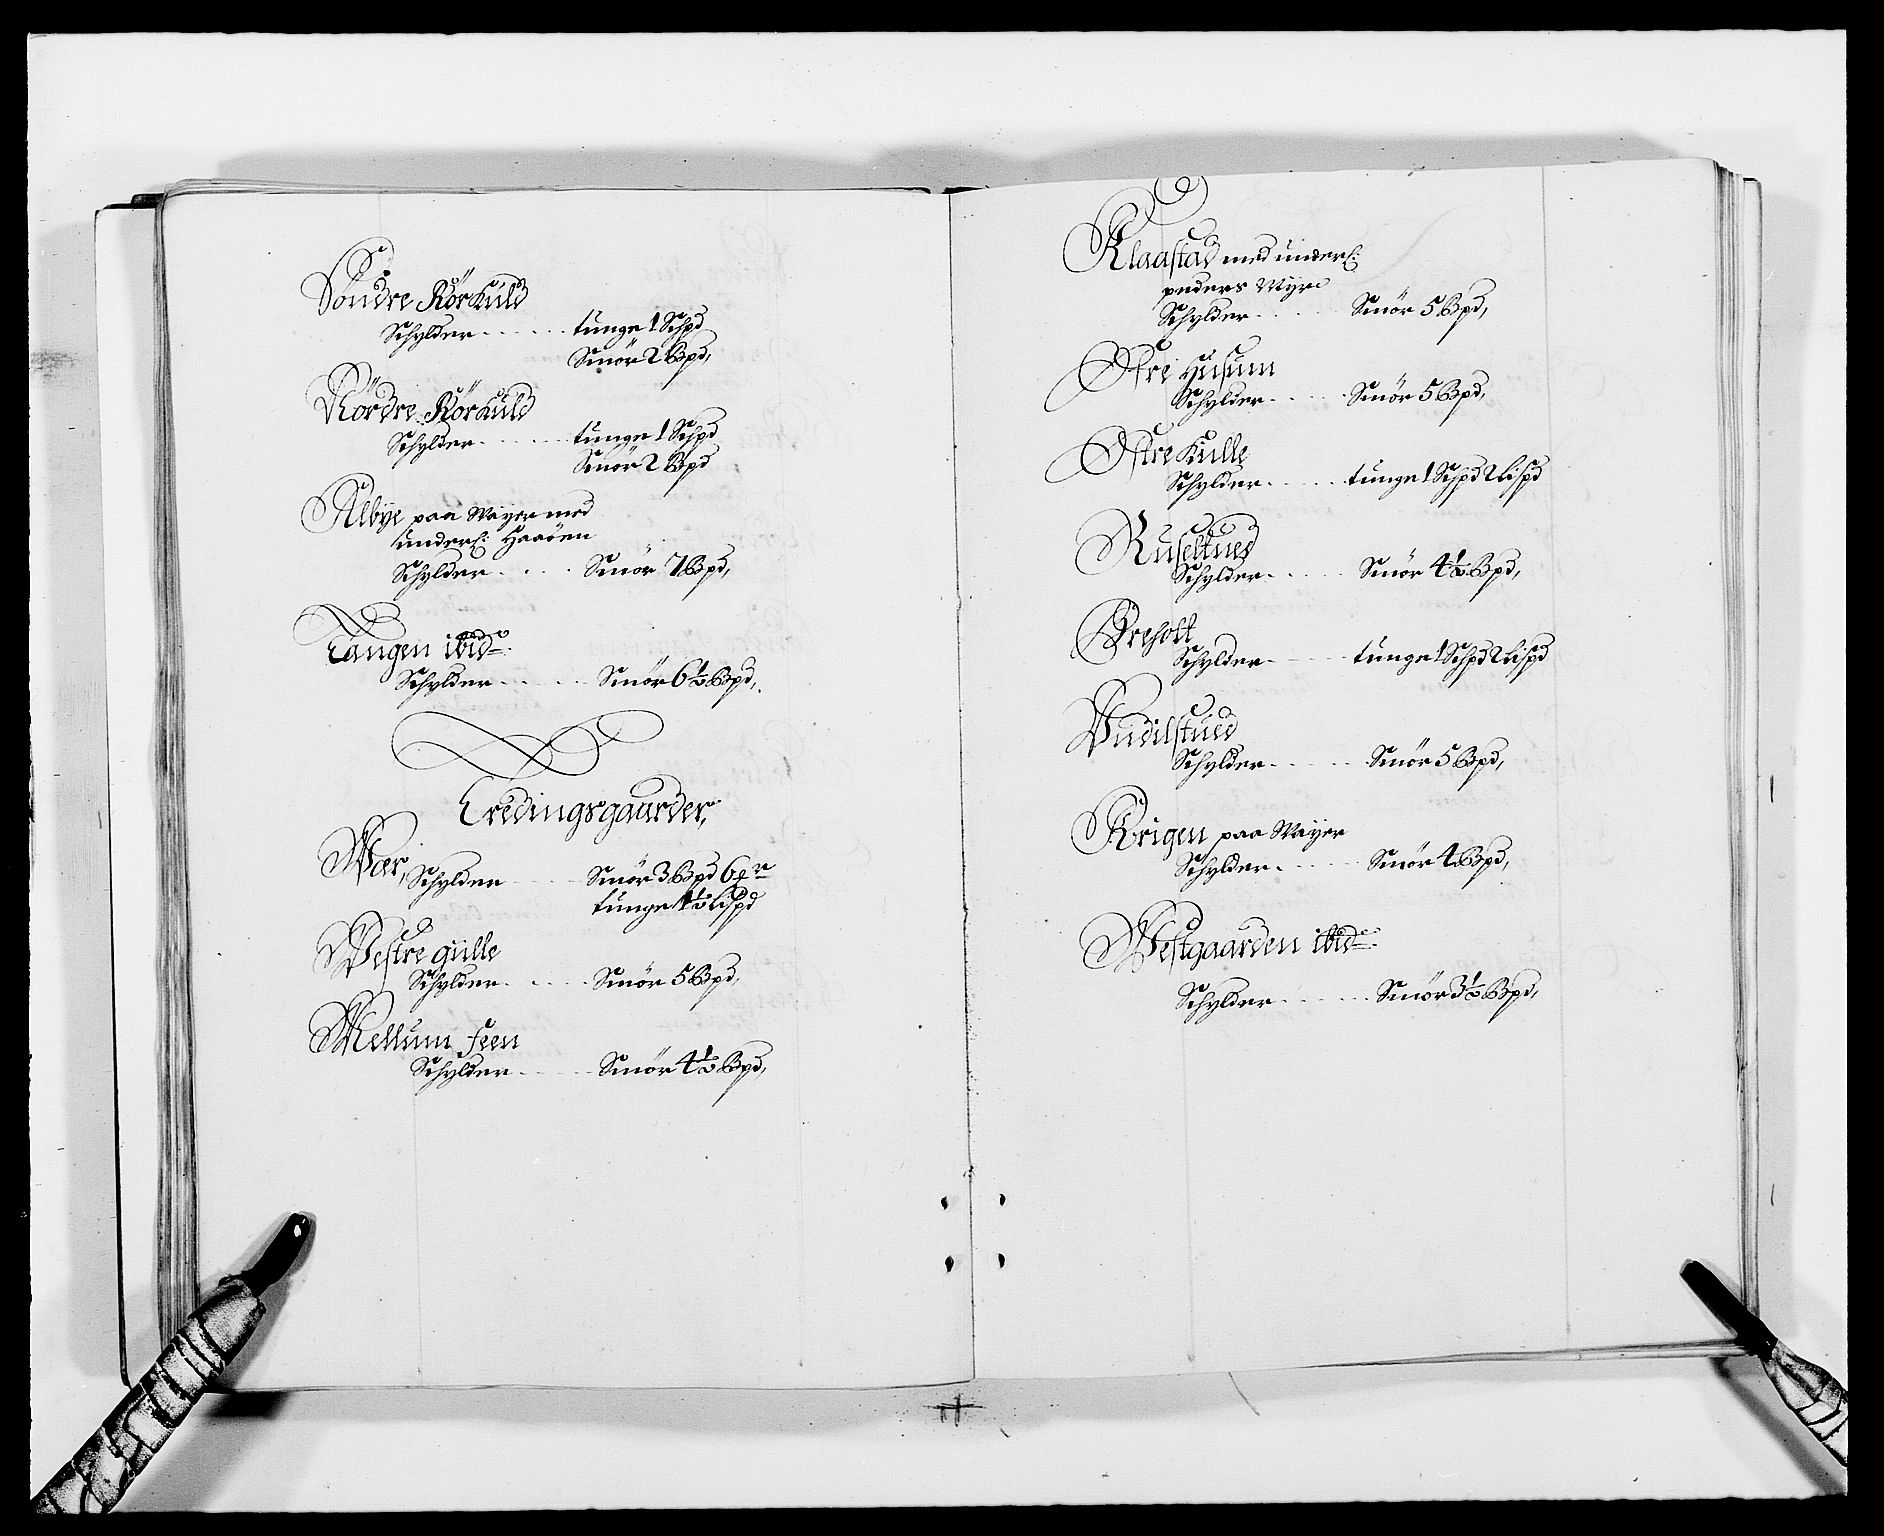 Söndre Rörkuld
Schylder . . . . . . tunge 1 Schpd
Smör 2 Bpd,
Nördre Rörkuld
Schylder . . . . . . tunge 1 Schpd
Smör 2 Bpd
Albye paa Mayer med
underl: Haaöen
Schylder . . . . Smör 7 Bpd,
Tangen ibid:
Schylder . . . . . Smör 6½ Bpd,
Tredingsgaarder,
Wær, Schylder . . . . Smör 3 Bpd 6
tunge 1½ Lispd
Westre gulle
Schylder . . . . . Smör 5 Bpd,
Mellum Feen
Schylder . . . . . Smör 4½ Bpd,
Klaastad med underl:
Myre
Schylder . . . . . Smör 5 Bpd,
Ostre Husum
Schylder . . . . . Smör 5 Bpd,
Ostre Kulle
Schylder . . . . . tunge 1 Schpd 2 lispd
Ruseltued
Schylder . . . . . Smör 4½ Bpd,
Breholt
Schylder . . . . . tunge 1 Schpd 2 lispd
Vudilstued
Schylder . . . . . Smör 5 Bpd,
Krigen paa Mayer
Schylder . . . . . Smör 4 Bpd,
Westgaarden ibid:
Schylder . . . . . Smör 3½ Bpd,